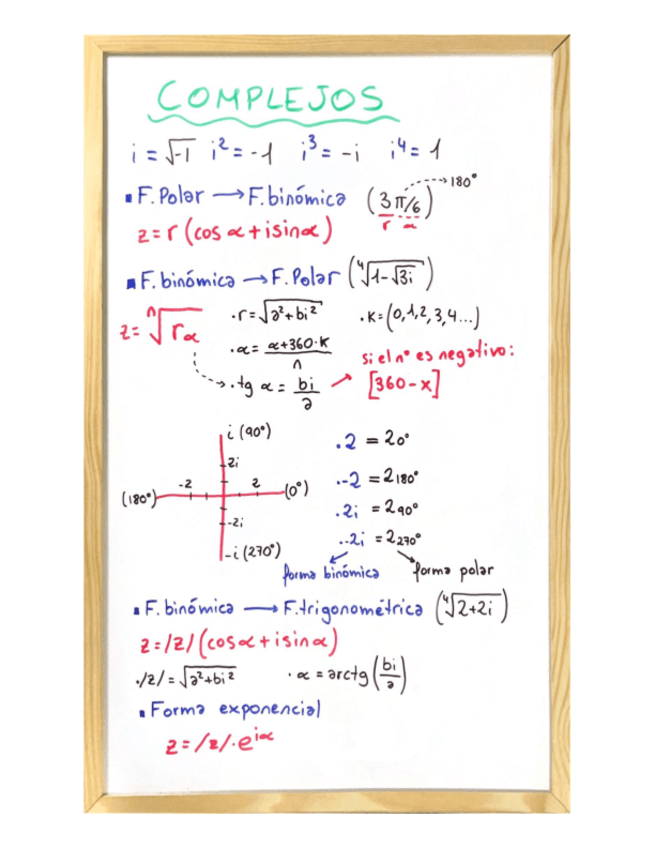 COMPLEJOS
i = √-1 i² = -1 i³ = -i i⁴ = 1
▪ F. Polar → F. binómica (3 π/6) → 180°
r α
z = r (cos α + i sin α)
▪ F. binómica → F. Polar (⁴√1-√3i)
z = ⁿ√rα
· r = √a²+bi²
· K = (0,1,2,3,4...)
· α = α+360·K / n
si el nº es negativo:
· tg α = bi / a → [360-x]
i (90°)
2i
-2 2
(180°) (0°)
-2i
-i (270°)
· 2 = 2₀°
· -2 = 2₁₈₀°
· 2i = 2₉₀°
· -2i = 2₂₇₀°
forma binómica forma polar
▪ F. binómica → F. trigonométrica (⁴√2+2i)
z = /z/ (cos α + i sin α)
· /z/ = √a²+bi² · α = arctg (bi/a)
▪ Forma exponencial
z = /z/ · e^iα